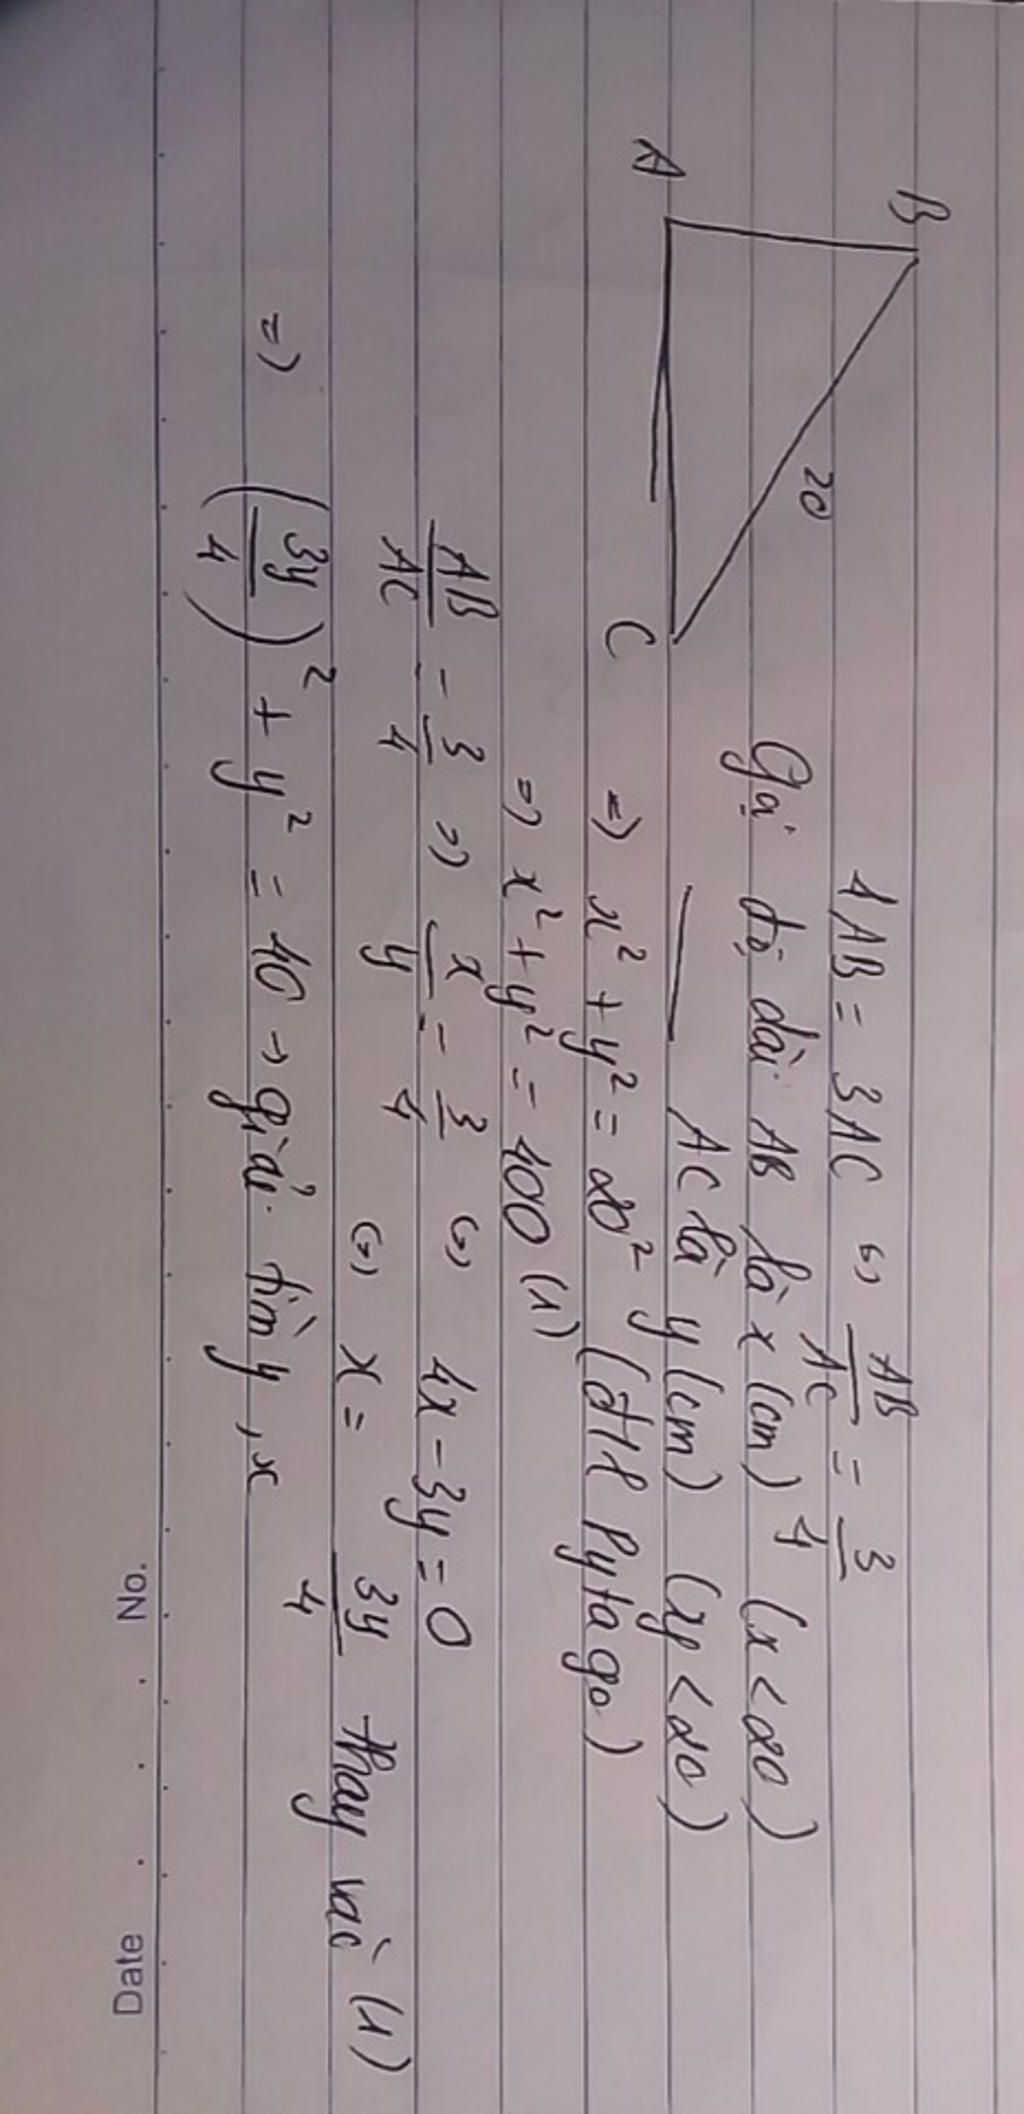 B
20
A
C
4AB = 3AC (=) AB/AC = 3/4
Gọi độ dài AB là x (cm) (x < 20)
___ AC là y (cm) (xy < 20)
=) x² + y² = 20² (đHl Pytago)
=) x² + y² = 400 (1)
AB/AC = 3/4 =) x/y = 3/4 (=) 4x - 3y = 0
(=) x = 3y/4 thay vào (1)
=) (3y/4)² + y² = 40 → giải tìm y, x
No.
Date